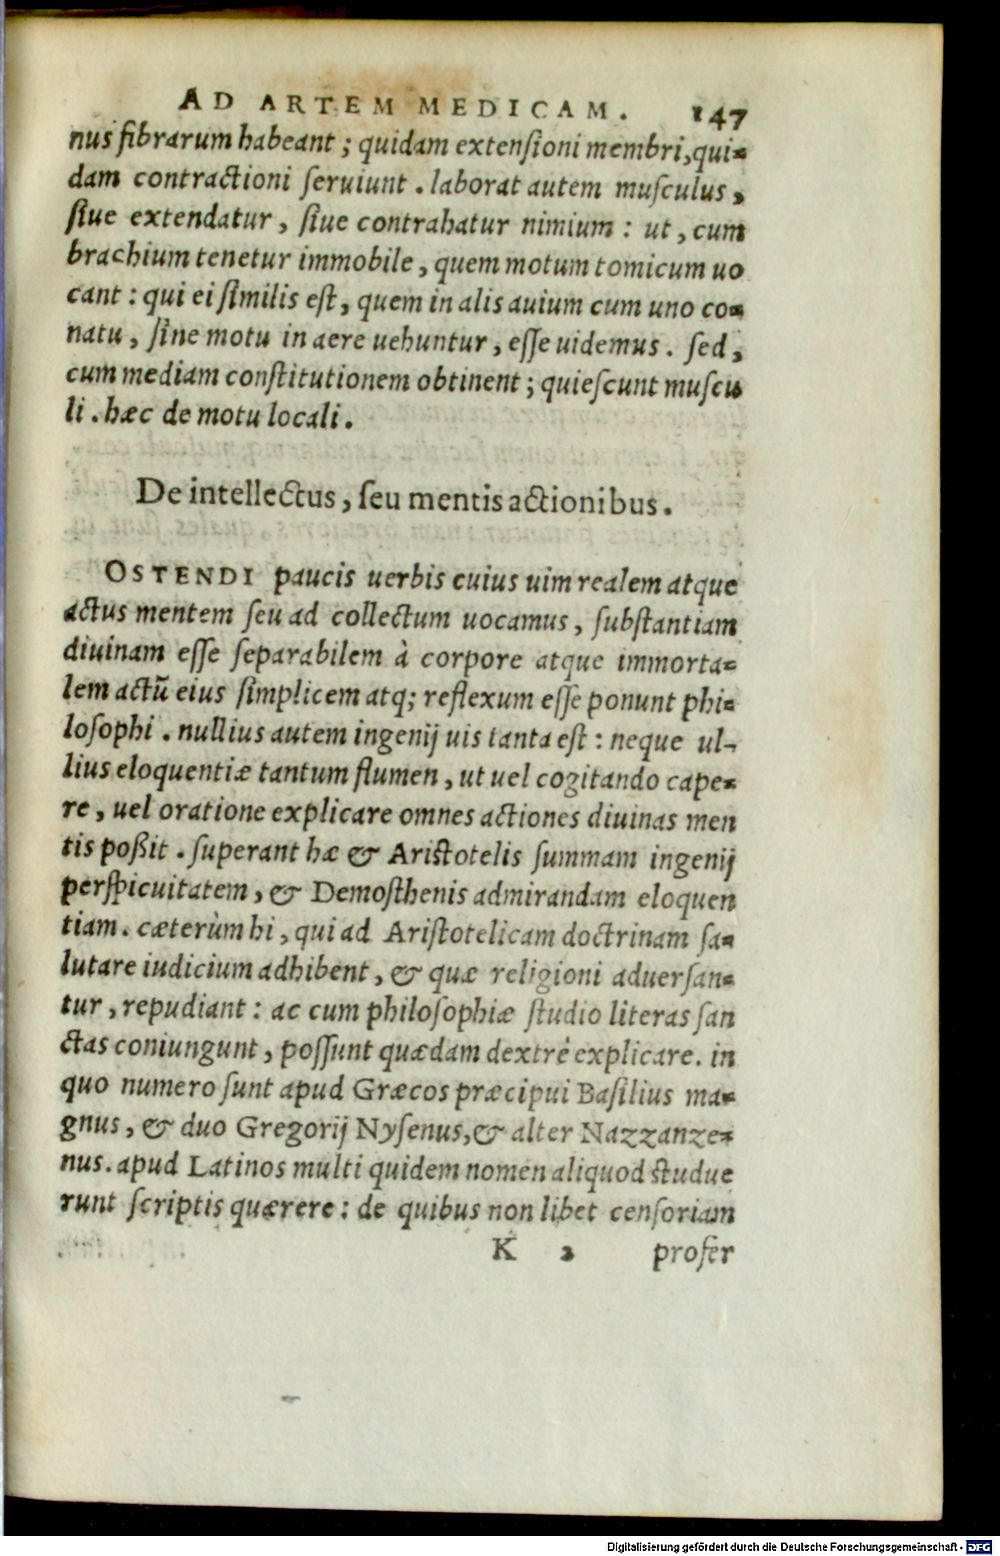 AD ARTEM MEDICAM. 147
nus fibrarum habeant; quidam extensioni membri, qui=
dam contractioni seruiunt. laborat autem musculus,
siue extendatur, siue contrahatur nimium: ut, cum
brachium tenetur immobile, quem motum tomicum uo
cant: qui ei similis est, quem in alis auium cum uno co=
natu, sine motu in aere uehuntur, esse uidemus. sed,
cum mediam constitutionem obtinent; quiescunt muscu
li. hæc de motu locali.
De intellectus, seu mentis actionibus.
OSTENDI paucis uerbis cuius uim realem atque
actus mentem seu ad collectum uocamus, substantiam
diuinam esse separabilem à corpore atque immorta=
lem actū eius simplicem atq; reflexum esse ponunt phi=
losophi. nullius autem ingenij uis tanta est: neque ul=
lius eloquentiæ tantum flumen, ut uel cogitando cape=
re, uel oratione explicare omnes actiones diuinas men
tis poßit. superant hæ & Aristotelis summam ingenij
perspicuitatem, & Demosthenis admirandam eloquen
tiam. cæterùm hi, qui ad Aristotelicam doctrinam sa=
lutare iudicium adhibent, & quæ religioni aduersan=
tur, repudiant: ac cum philosophiæ studio literas san
ctas coniungunt, possunt quædam dextrè explicare. in
quo numero sunt apud Græcos præcipui Basilius ma=
gnus, & duo Gregorij Nysenus, & alter Nazzanze=
nus. apud Latinos multi quidem nomen aliquod studue
runt scriptis quærere: de quibus non libet censoriam
K 2 profer
Digitalisierung gefördert durch die Deutsche Forschungsgemeinschaft - DFG